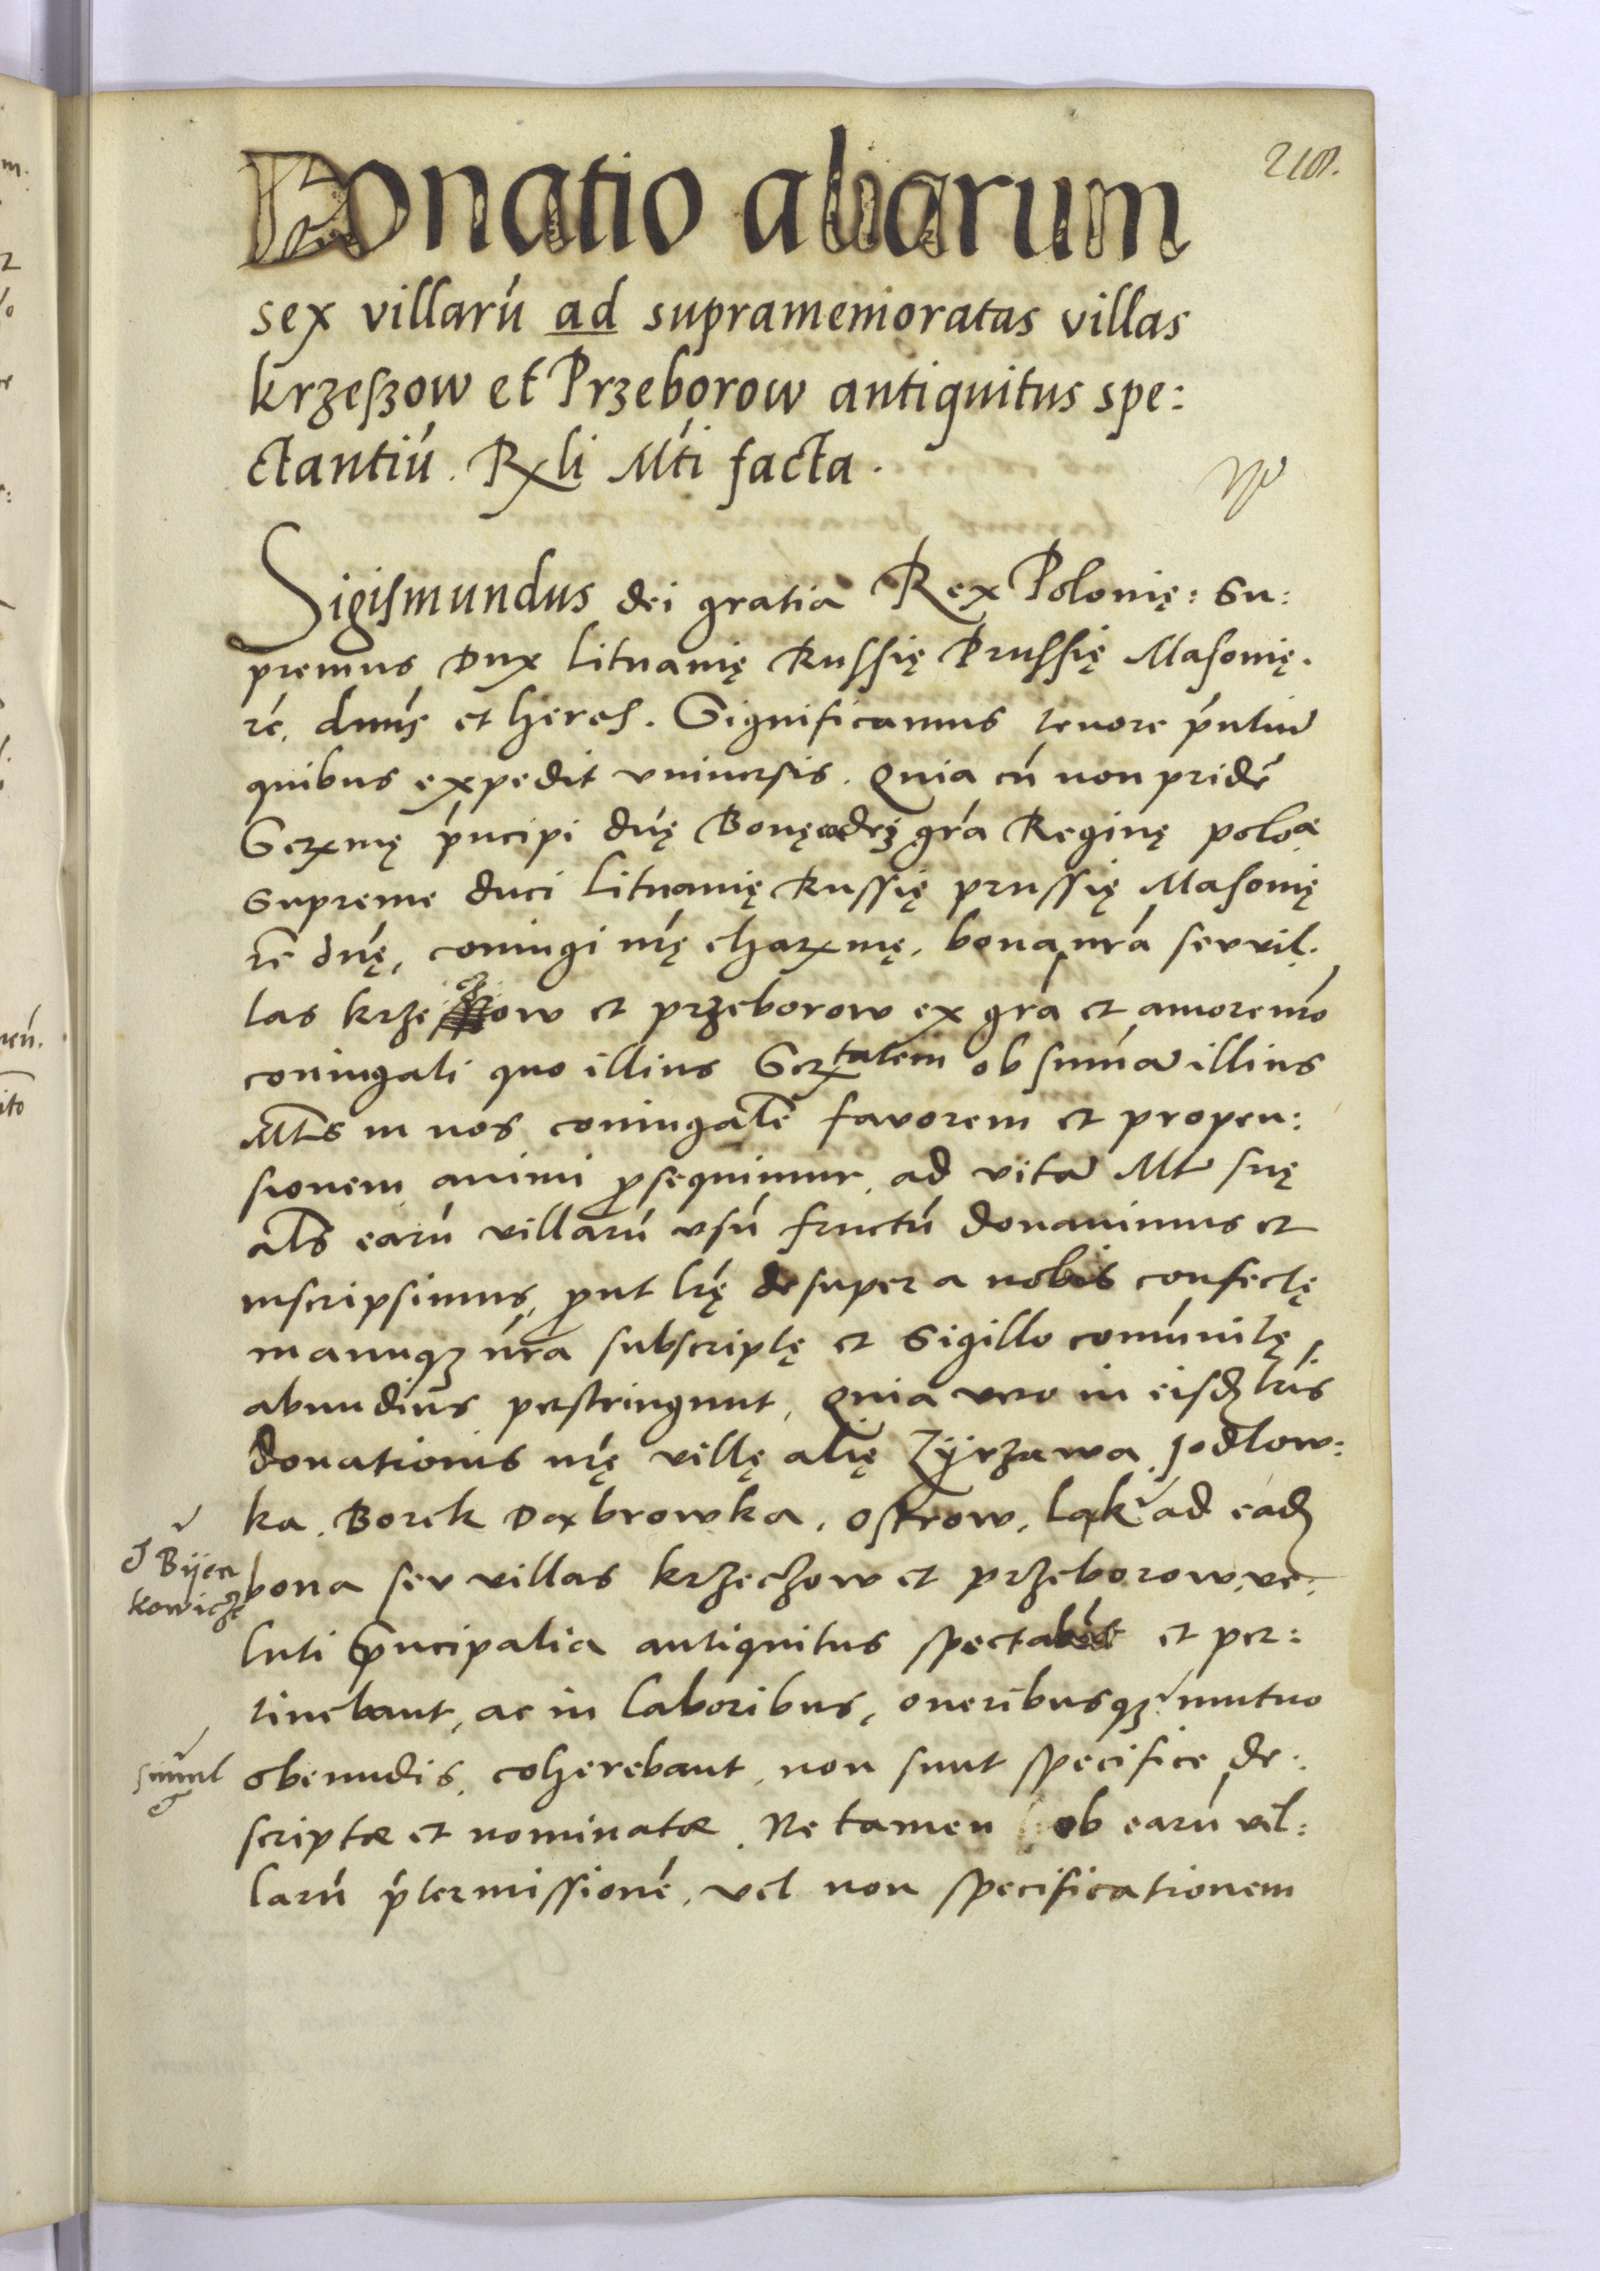 Donatio aliarum
sex villarũ ad supramemoratas villas
krzeſzow et Przeborow antiquitus spe:
ctantiũ. Rxli Mti facta.
Sigismundus dei gratia Rex Polonię: Su:
premus Dux Lituanię Russię Prussię Masonię.
rć. dnus et heres. Significamus tenore pńtium
quibus expedit vniversis. Quia cũ non pridẽ
Serxmę pńcipi dnę Bonę dei gra Reginę poloę
Supreme duci Lituanię Russię prussię Masonię
rć dnę, coniugi nrę charxmę, bona nra seu vil.
las krzeczow et przeborow ex gra et amore nro
coniugali quo illius Serxtatem ob summam illius
Mtis in nos coniugalẽ favorem et propen:
sionem animi ꝓsequimur, ad vitam Mtis suę
als earũ villarũ usũ fructũ donavimus et
inscripsimus, ꝓut lrę desuper a nobis confectę
manuqz nra subscriptę et Sigillo comunitę
abundius perstringunt, Quia vero in eisdẽ lris
donationis nrę villę alię Zÿrzawa, Jodlow:
ka, Borek Dąxbrowka, Ostrow, Ląk ad eadẽ
J Bÿen
kowicze
bona seu villas krzeczow et przeborow, ve:
luti ꝓncipalia antiquitus spectabãt et per:
tinebant, ac in laboribus, oneribusqz mutuo
simul
obeundis, coherebant, non sunt specifice de:
scriptæ et nominatæ. Ne tamen ob earũ vil:
larũ ptermissionẽ, vel non specificationem